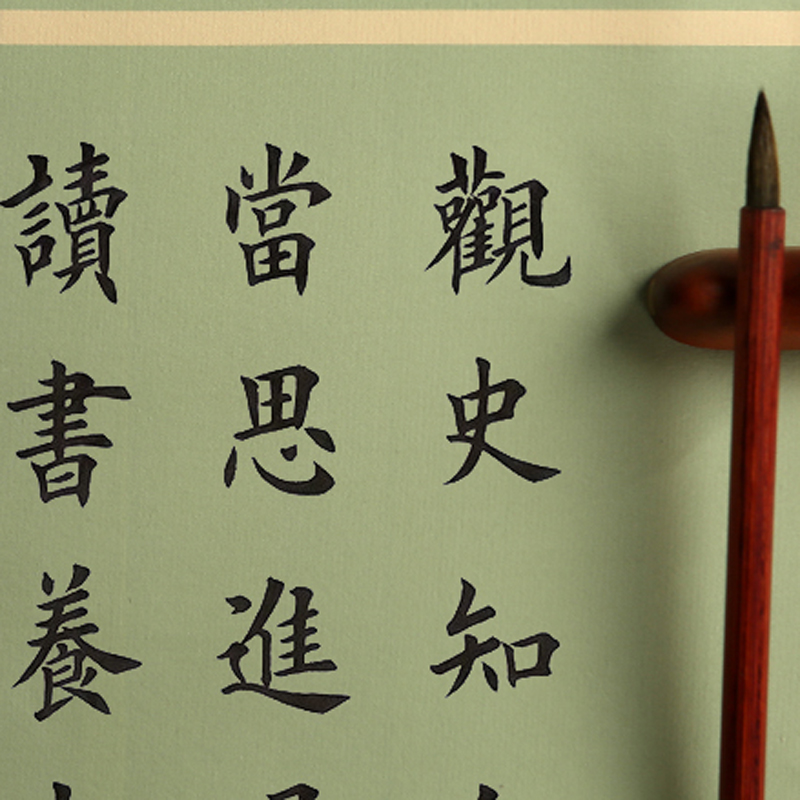 觀史知
當思進
讀書養